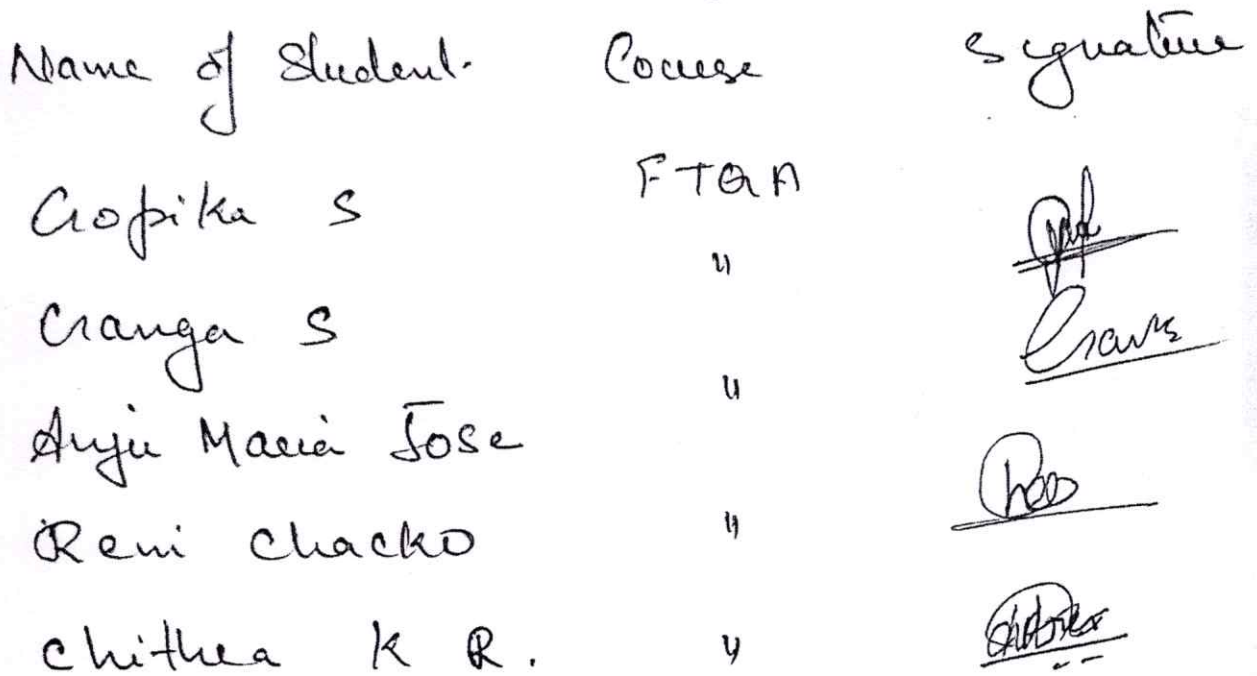 Name of Student. Course Signature
Gopika S FTQA
Ganga S "
Anju Maria Jose "
Reni Chacko "
Chithra K R. "